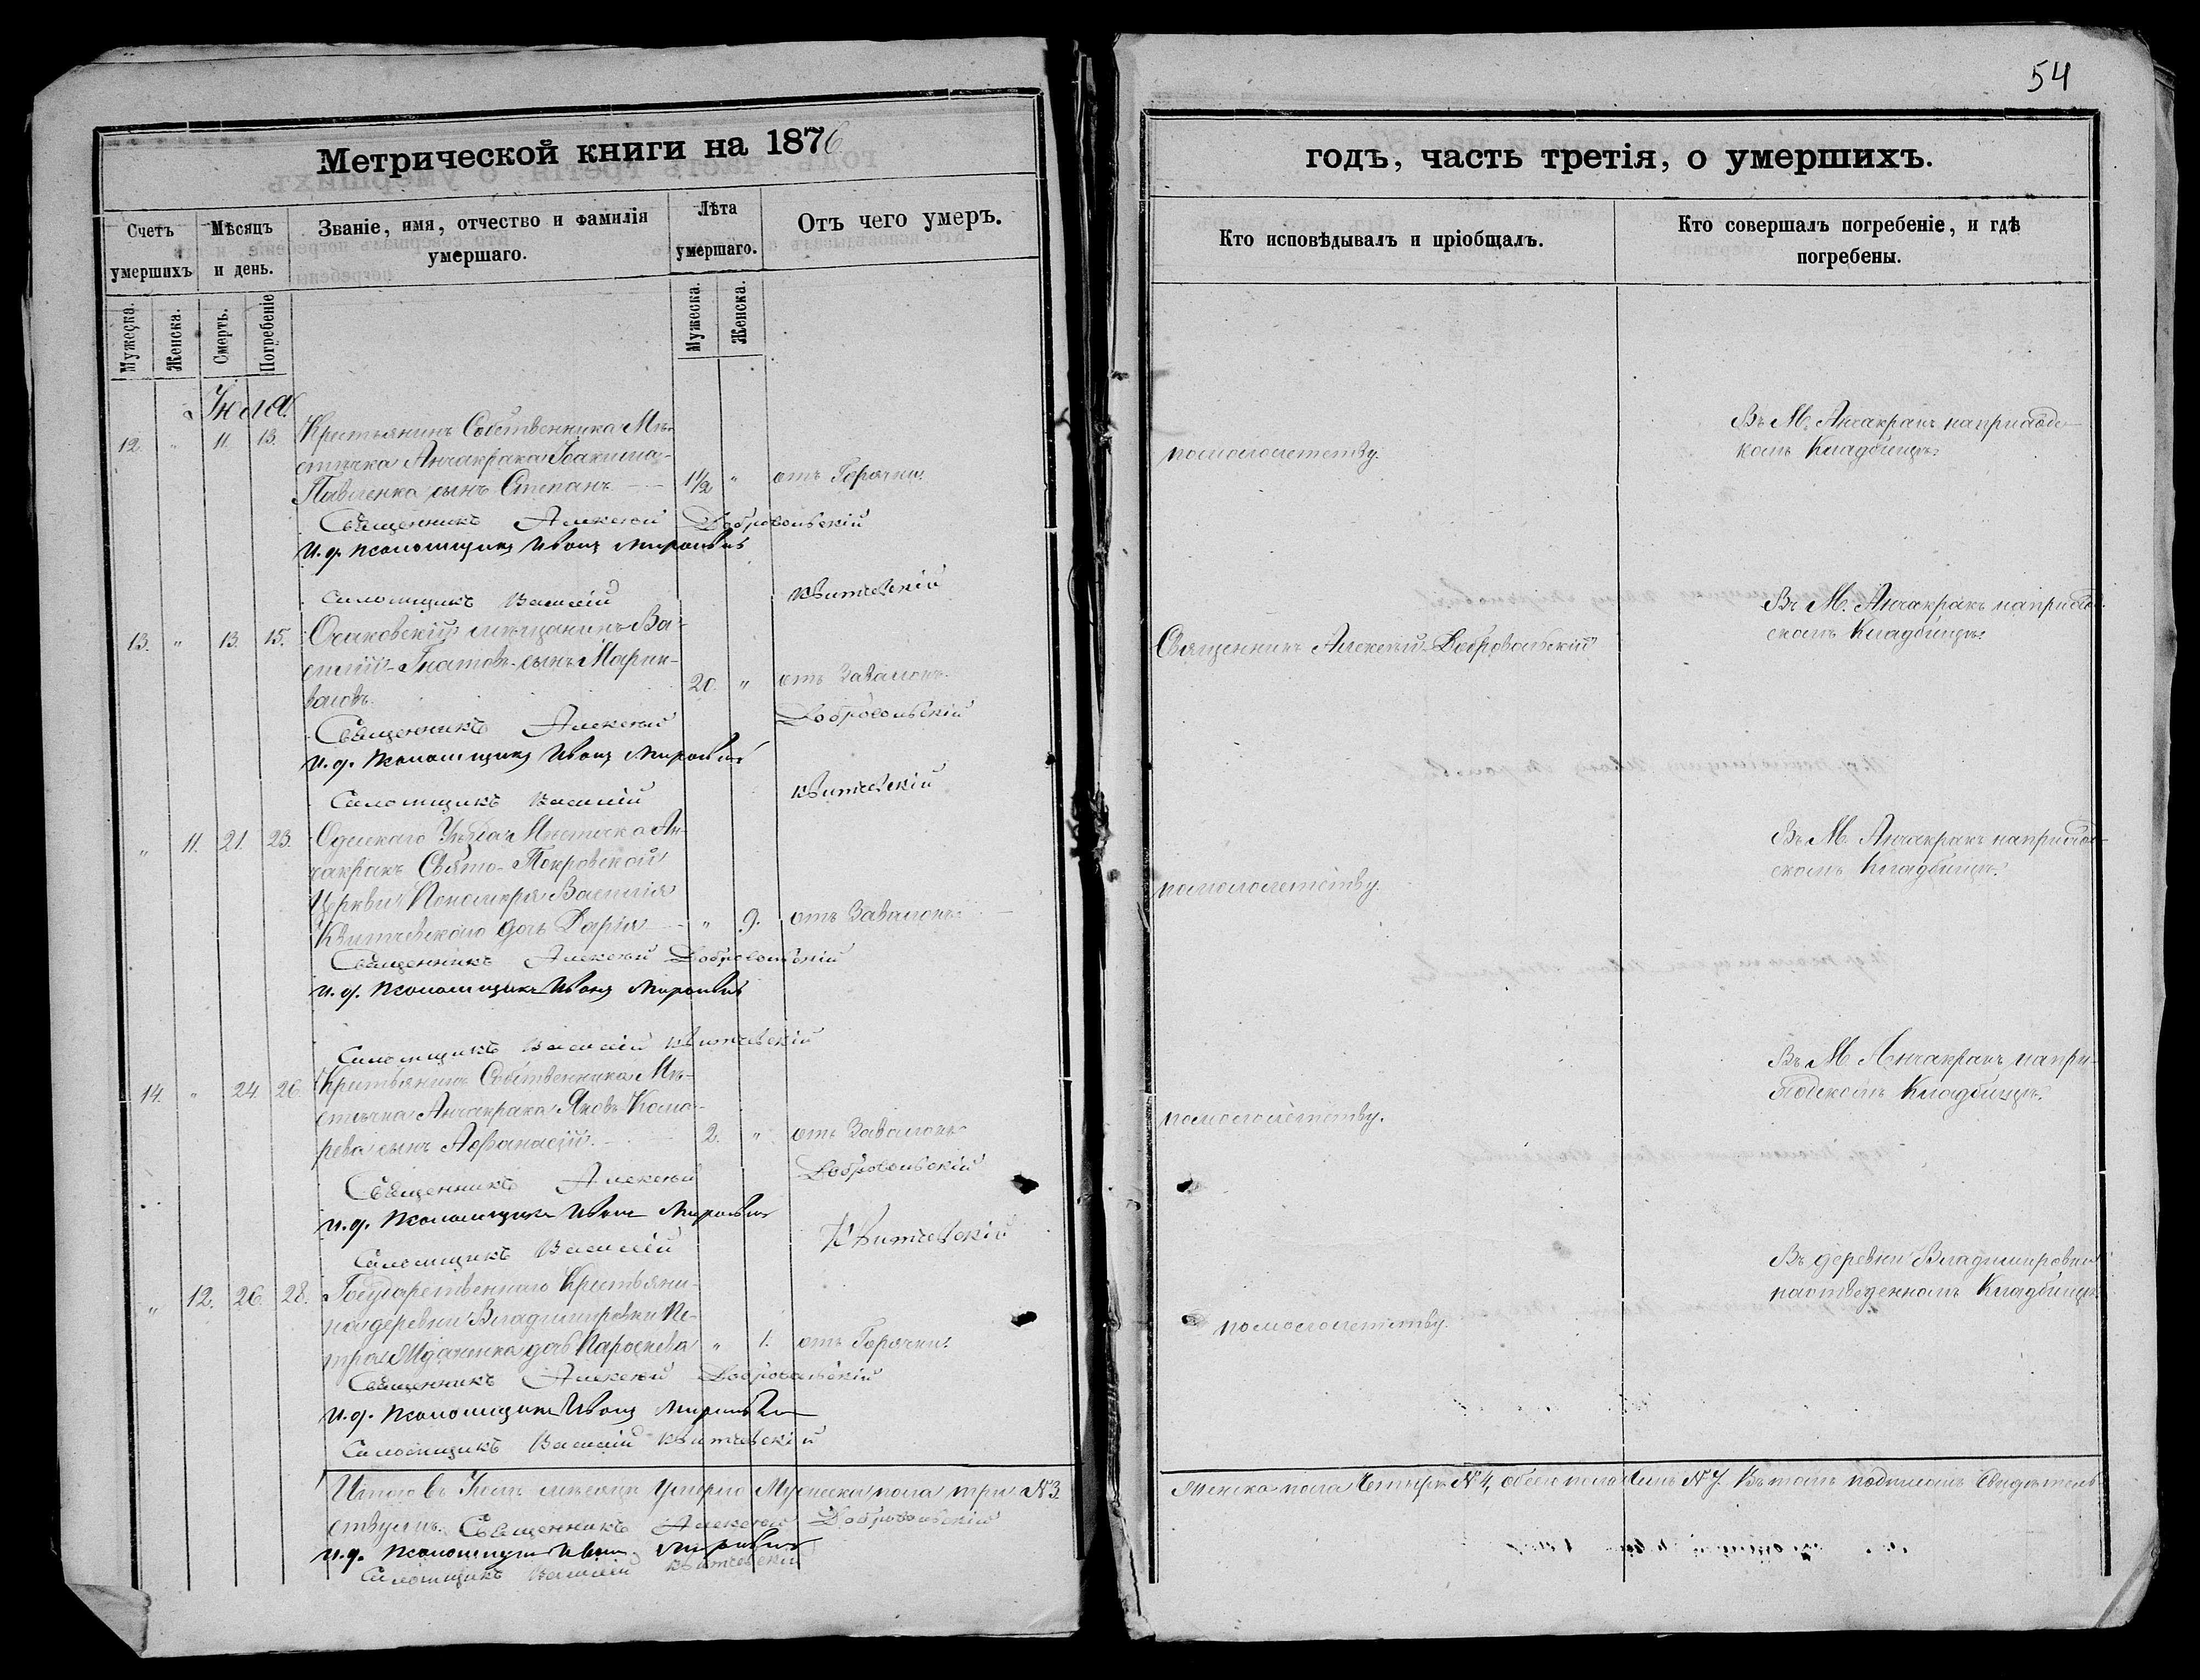 54
Метрической книги на 1876
годъ, часть третія, о умершихъ.
Счетъ умершихъ
Мѣсяцъ и день.
Званіе, имя, отчество и фамилія умершаго.
Лѣта умершаго.
Отъ чего умеръ.
Кто исповѣдывалъ и пріобщалъ.
Кто совершалъ погребеніе, и гдѣ погребены.
Мужеска.
Женска.
Смерть.
Погребеніе
Мужеска.
Женска.
Іюля
12. " 11. 13. Крестьянина Собственника Мѣ-
стечка Анчакрака Іоакима
Павленка сынъ Стефанъ 1½ " отъ Горячки.
помололетству.
Въ М. Анчакракъ наприход-
скомъ Кладбищѣ.
Священникъ Алексѣй Добровольскій
И. д. псаломщика Иванъ Мироновъ
Саломщикъ Василій Квитчевскій
13. " 13. 15. Очаковскій мѣщанинъ Ва-
силій Игнатовъ сынъ
20. " отъ Завалокъ.
Священникъ Алексѣй Добровольскій
Въ М. Анчакракъ наприход-
скомъ Кладбищѣ.
Священникъ Алексѣй Добровольскій
И. д. псаломщика Иванъ Мироновъ
Саломщикъ Василій Квитчевскій
" 11. 21. 23. Одескаго Уѣзда Мѣстечка Ан-
чакракъ Свято-Покровской
Церкви Пономаря Василія
Квитчевскаго дочь Дарія " 9. отъ Завалокъ.
помололетству.
Въ М. Анчакракъ наприход-
скомъ Кладбищѣ.
Священникъ Алексѣй Добровольскій
И. д. псаломщика Иванъ Мироновъ
Саломщикъ Василій Квитчевскій
14. " 24. 26. Крестьянина Собственника Мѣ-
стечка Анчакрака Яковъ Кома-
рева сынъ Афанасій 2. " отъ Завалокъ
помололетству.
Въ М. Анчакракъ напри-
ходскомъ Кладбищѣ.
Священникъ Алексѣй Добровольскій
И. д. псаломщика Иванъ Мироновъ
Саломщикъ Василій Квитчевскій
" 12. 26. 28. Государственнаго Крестьяни-
на деревни Владимировки Пе-
тра дочь Параскева " 1. отъ Горячки.
помололетству.
Въ деревни Владимировки
наотведенномъ Кладбищѣ.
Священникъ Алексѣй Добровольскій
И. д. псаломщика Иванъ Мироновъ
Саломщикъ Василій Квитчевскій
Итого въ Іюлѣ мѣсяцѣ умерло Мужеска пола три №3.
Женска пола Четыре №4, обоего пола №7. Въ томъ подписомъ Свидѣтель-
ствуемъ. Священникъ Алексѣй Добровольскій
И. д. псаломщика Иванъ Мироновъ
Саломщикъ Василій Квитчевскій